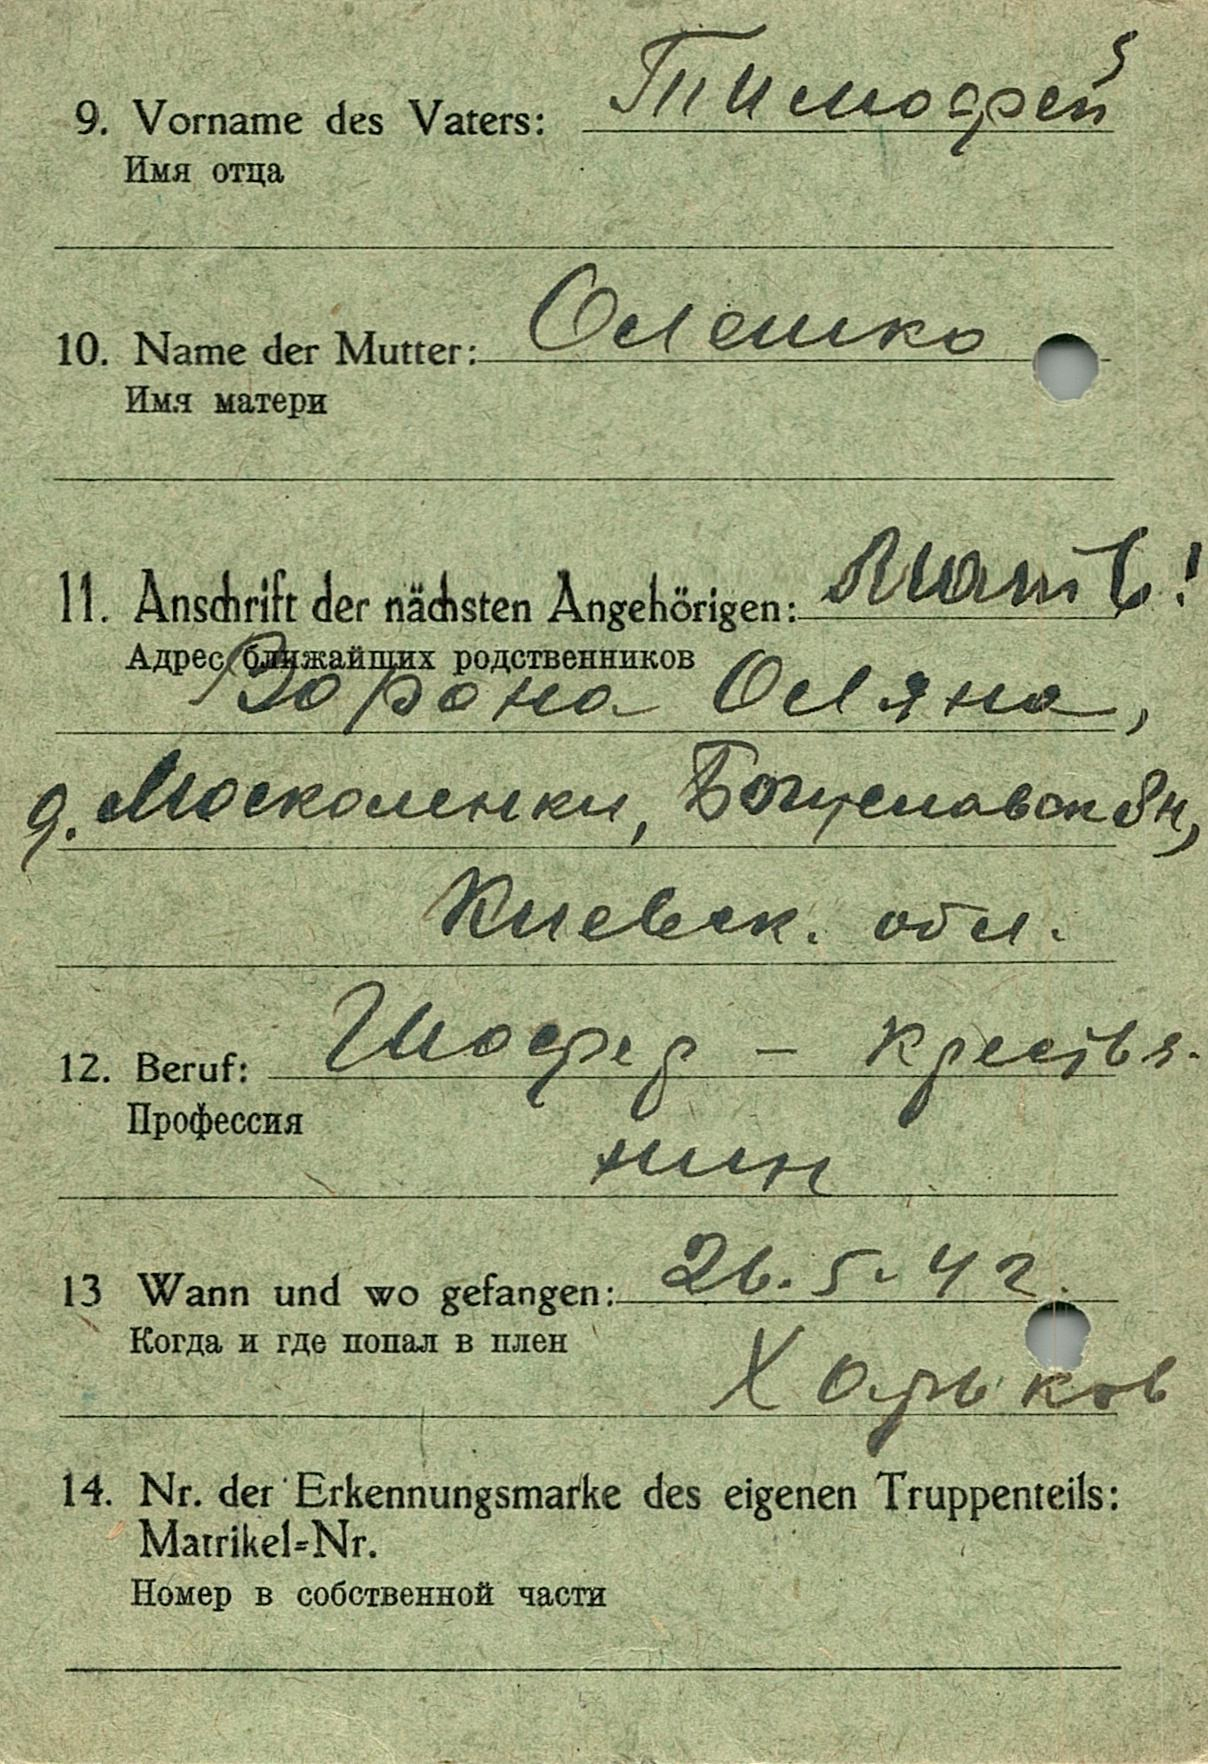 9. Vorname des Vaters: Тимофей
Имя отца
10. Name der Mutter: Олешко
Имя матери
11. Anschrift der nächsten Angehörigen: Мать!
Адрес ближайших родственников
Ворона Оляна,
д. Москаленки, Богуславск рн,
Киевск. обл.
12. Beruf: Шофер – крестья-
Профессия
нин
13 Wann und wo gefangen: 26.5.42.
Когда и где попал в плен
Харьков
14. Nr. der Erkennungsmarke des eigenen Truppenteils:
Matrikel=Nr.
Номер в собственной части